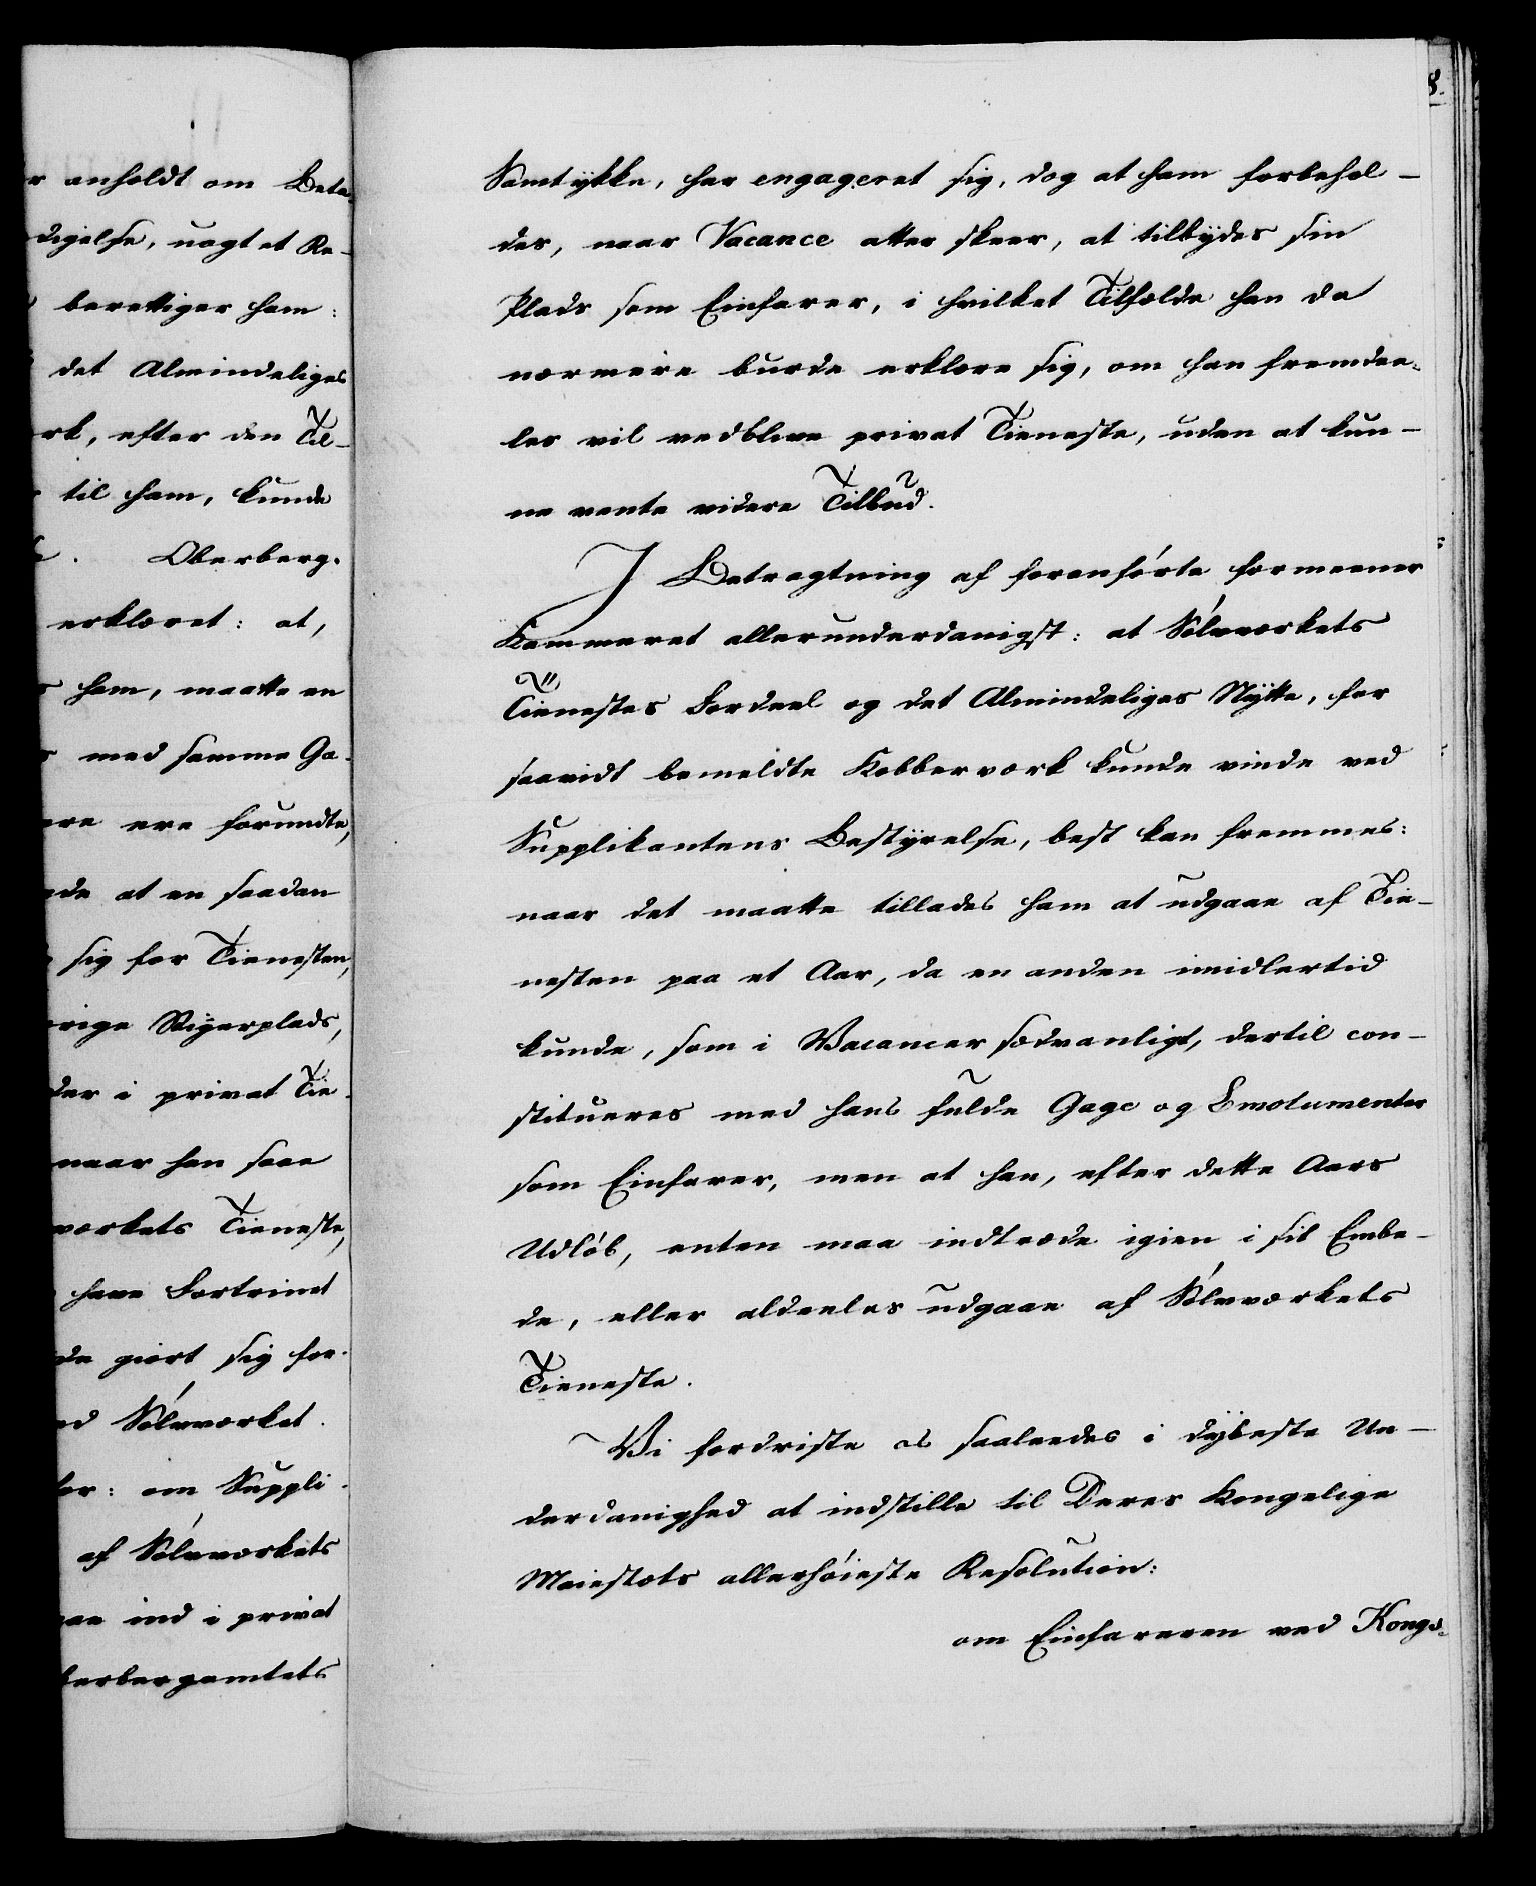 r anholdt om Beta-
digelse, uagtet Re-
berettiger ham:
det Almindeliges
rk, efter den Til-
til ham, kunde
Oberberg-
erklæret: at,
s ham, maatte en
s med samme Ga-
ere ere forundte,
de at en saadan
sig for Tienesten,
rige Stigerplads,
der i privat Tie-
naar han saae
værkets Tieneste,
have Fortrinet
de giort sig for-
ed Sölvværket.
ler: om Suppli-
af Sölvværkets
aae ind i privat
berbergamtets
8.
Samtykke, har engageret sig, dog at ham forbehol-
des, naar Vacance atter skeer, at tilbydes sin
Plads som Einfarer, i hvilket Tilfælde han da
nærmere burde erklære sig, om han fremdee-
les vil vedblive privat Tieneste, uden at kun-
ne vente videre Tilbud.
I Betragtning af foranförte formeener
Kammeret allerunderdanigst: at Sölvværkets
Tienestes Fordeel og det Almindeliges Nytte, for
saavidt bemeldte Kobberværk kunde vinde ved
Supplikantens Bestyrelse, best kan fremmes:
naar det maatte tillades ham at udgaae af Tie-
nesten paa et Aar, da en anden imidlertid
kunde, som i Vacancer sædvanligt, dertil con-
stitueres med hans fulde Gage og Emolumenter
som Einfarer, men at han, efter dette Aars
Udlöb, enten maa indtræde igien i sit Embe-
de, eller aldeeles udgaae af Sölvværkets
Tieneste.
Vi fordriste os saaledes i dybeste Un-
derdanighed at indstille til Deres Kongelige
Maiestæts allerhöieste Resolution:
om Einfareren ved Kongs-